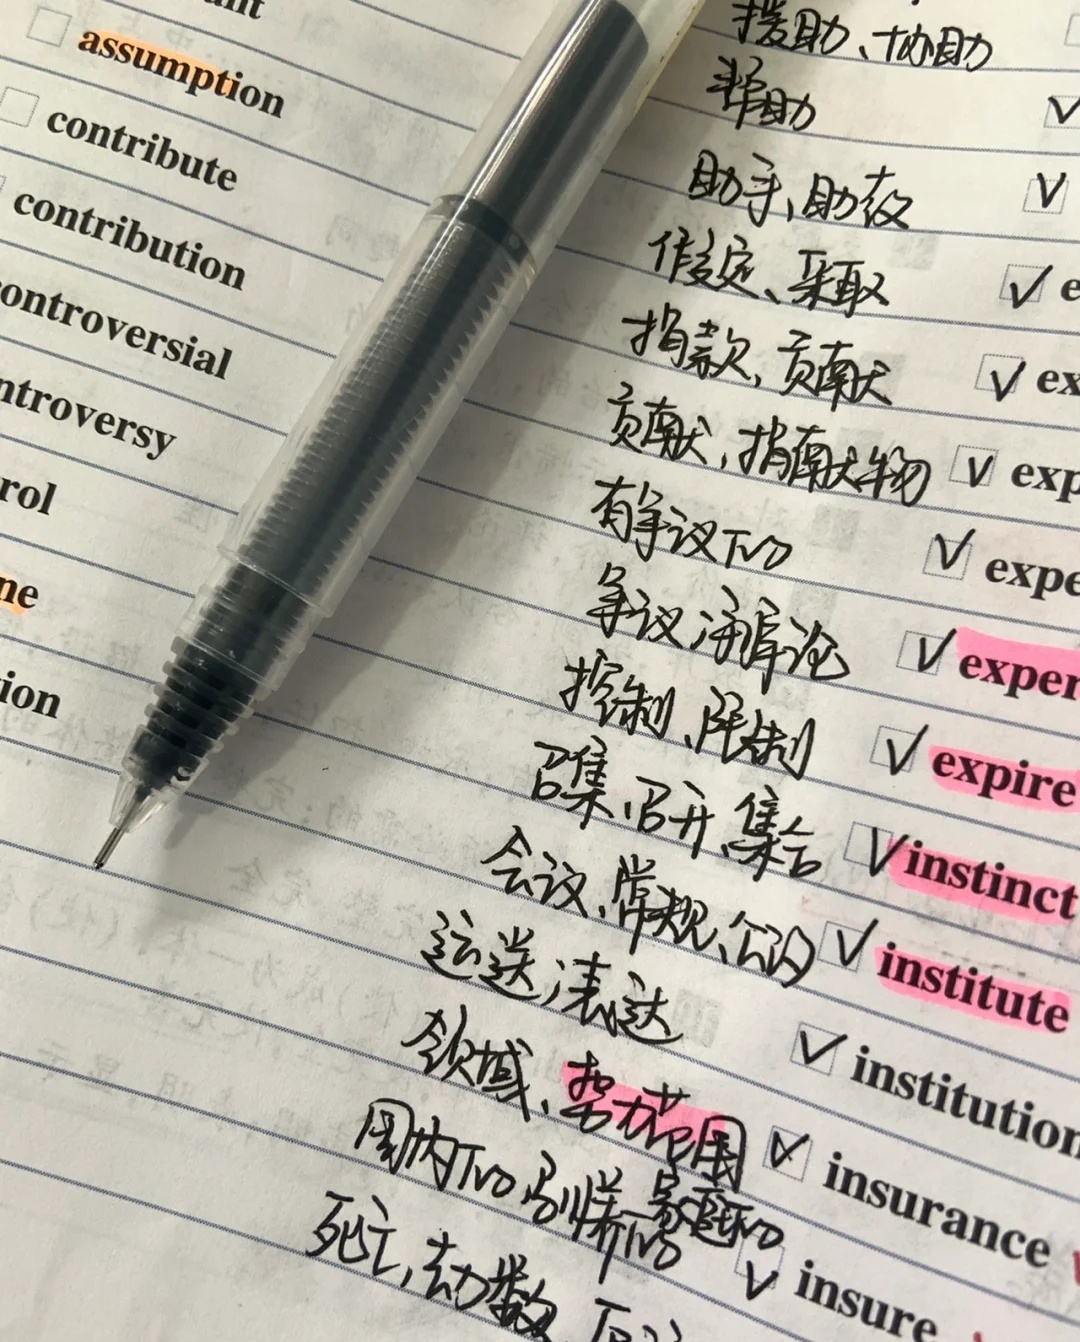 assumption
contribute
contribution
ontroversial
ntroversy
rol
ne
ion
援助、协助
帮助
助手、助教
假定、采取
捐款、贡献
贡献、捐献物
有争议的
争议 辩论
控制、限制
召集、召开、集合
会议、常规、公约
运送、表达
领域、势力范围
国内的 驯养的 家庭的
死亡、
e
ex
exp
expe
exper
expire
instinct
institute
institution
insurance
insure